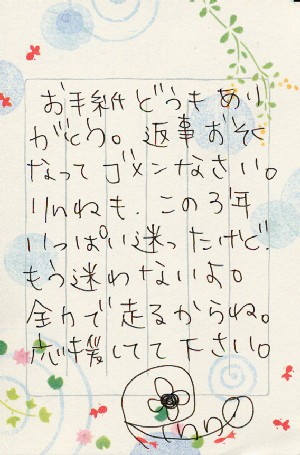 お手紙どうもあり
がとう。返事おそく
なってゴメンなさい。
りんねも、この3年
いっぱい迷ったけど、
もう迷わないよ。
全力で走るからね。
応援してて下さい。